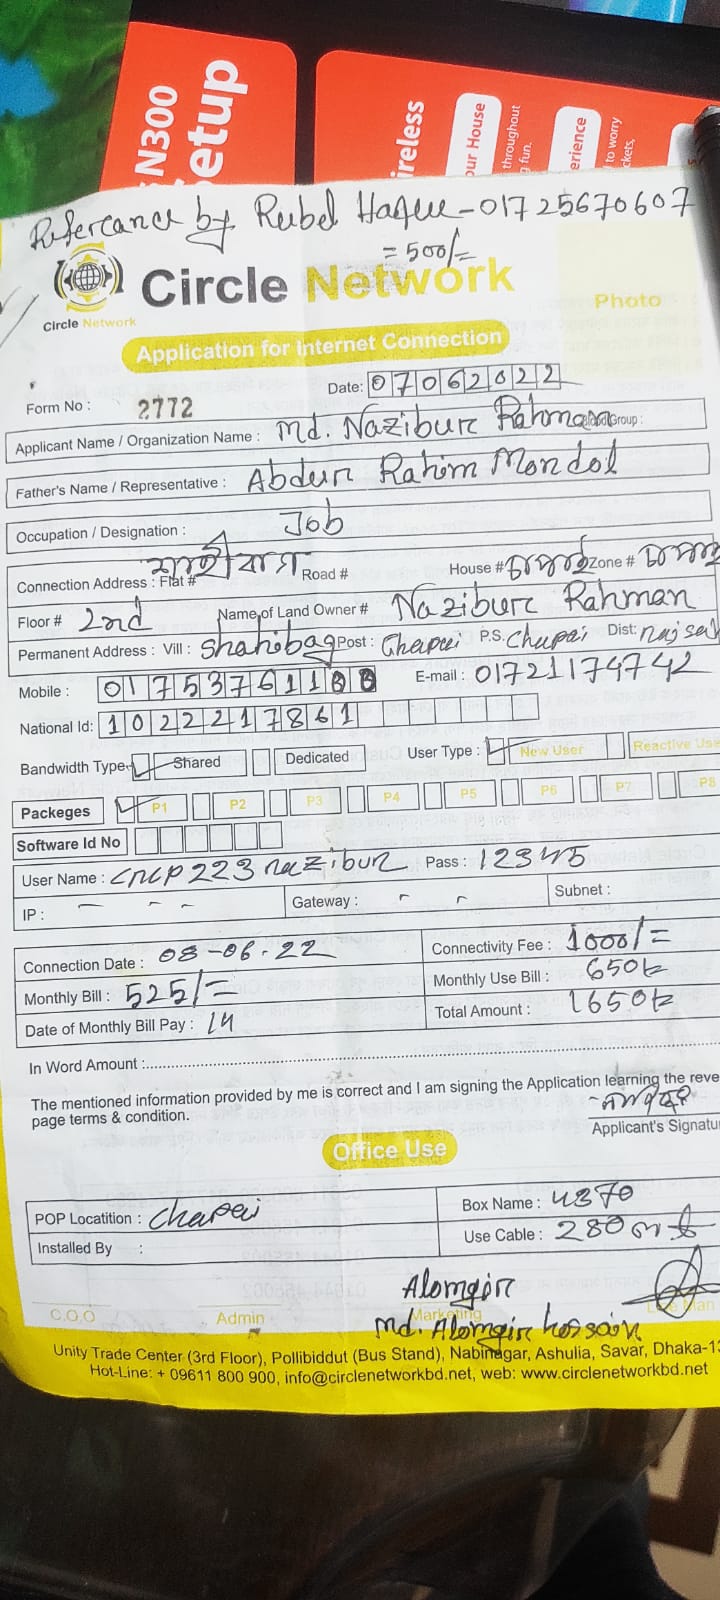 N300
etup
ireless
our House
throughout
g fun.
erience
to worry
ckets,
Referance by Rubel Haque - 01725670607
= 500/=
Circle Network
Circle Network
Photo
Application for Internet Connection
Date: 07062022
Form No : 2772
Applicant Name / Organization Name : Md. Nazibur Rahman Group :
Father's Name / Representative : Abdur Rahim Mondol
Occupation / Designation : Job
Connection Address : Flat # শাহীবাগ Road # House # Zone #
Floor # 2nd Name of Land Owner # Nazibur Rahman
Permanent Address : Vill : Shahibag Post : Chapai P.S. Chapai Dist:
Mobile : 017537611 E-mail : 01721174742
National Id: 1022217861
Bandwidth Type Shared Dedicated User Type : New User Reactive Use
Packeges P1 P2 P3 P4 P5 P6 P7 P8
Software Id No
User Name : cncp223nazibur Pass : 12345
IP : - - - Gateway : - - Subnet :
Connection Date : 08-06.22 Connectivity Fee : 1000/=
Monthly Bill : 525/= Monthly Use Bill : 650
Date of Monthly Bill Pay : 14 Total Amount : 1650
In Word Amount :
The mentioned information provided by me is correct and I am signing the Application learning the reve
page terms & condition.
Applicant's Signatu
Office Use
POP Locatition : Chapai Box Name : 4370
Installed By : Use Cable : 280
Alomgir
C.O.O Admin Marketing Line Man
Md. Alomgir hossain
Unity Trade Center (3rd Floor), Pollibiddut (Bus Stand), Nabinagar, Ashulia, Savar, Dhaka-13
Hot-Line: + 09611 800 900, info@circlenetworkbd.net, web: www.circlenetworkbd.net